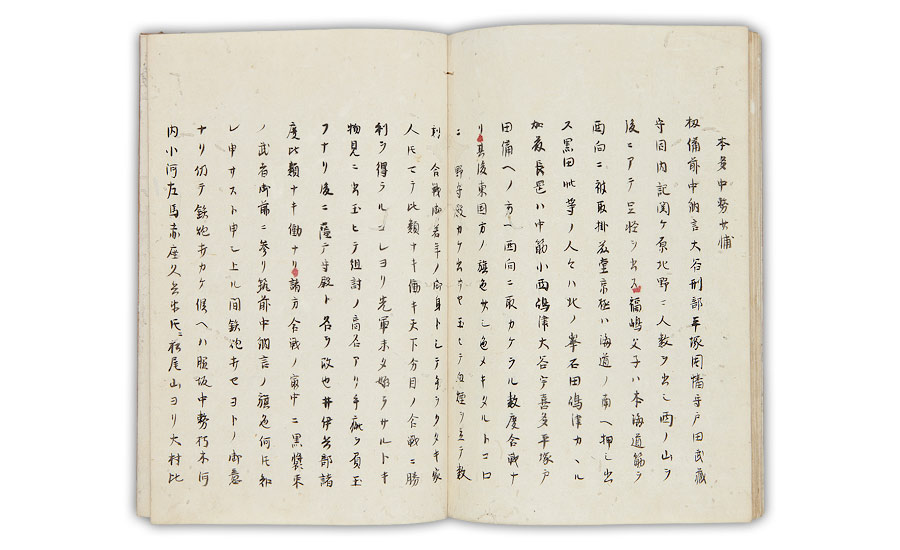 本多中務少輔
扨備前中納言大谷刑部平塚因幡守戸田武蔵
守同内記関ケ原北野ニ人数ヲ出シ西ノ山ヲ
後ニアテ足怪ヲ出ス福嶋父子ハ本海道筋ヲ
西向ニ被取掛藤堂京極ハ海道ノ南ヘ押シ出
ス黒田此等ノ人々ハ北ノ挙石田嶋津カヽル
加藤長岡ハ中筋小西嶋津大谷宇喜多平塚戸
田備ヘノ方ヘ西向ニ取カケラル数度合戦ナ
リ其後東国方ノ旗色少シ色メキタルトコロ
ニ 野守殿カケ出サセ玉ヒテ血煙ヲ立テ敷
利 合戦御若年ノ御身トシテキラタキ家
人ニモテ比類ナキ働キ天下分目ノ合戦ニ勝
利ヲ得ラルコレヨリ先軍未タ始ラサルトキ
物見ニ出玉ヒテ組討ノ高名アリ手疵ヲ負玉
フナリ後ニ薩广守殿ト名ヲ改也井伊兵部諸
度比類ナキ働ナリ諸方合戦ノ最中ニ黒装束
ノ武者御前ニ参リ筑前中納言ノ旗色何氏和
レ申サスト申シ上ル間鉄炮ウカセヨトノ御意
ナリ仍テ鉄炮打カケ候ヘハ脇坂中務朽木河
内小河左馬赤座久兵衛氏ニ松尾山ヨリ大村比